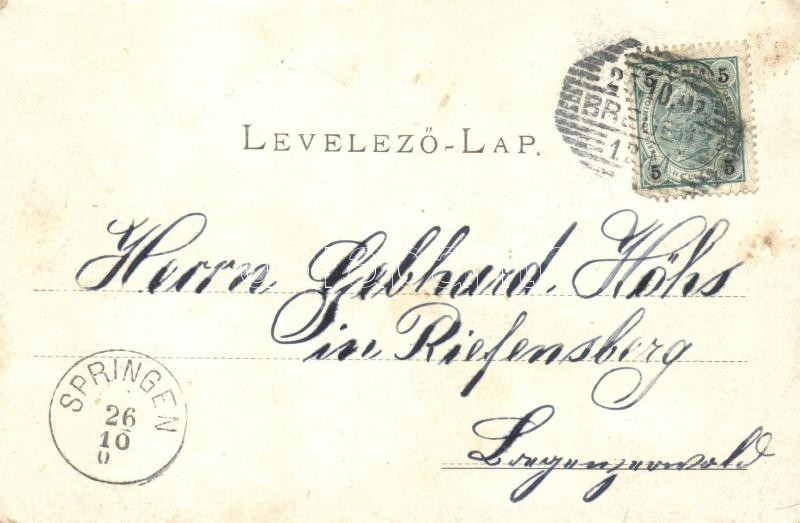 LEVELEZŐ-LAP.
5 5
5 5
Herrn Gebhard Höhs
in Riefensberg
Bregenzerwald
SPRINGEN
26
10
0